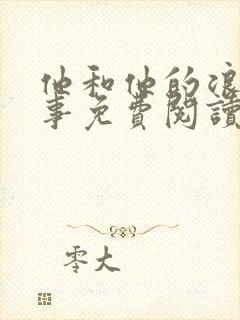 他和他的浪
事免費閱讀
零大